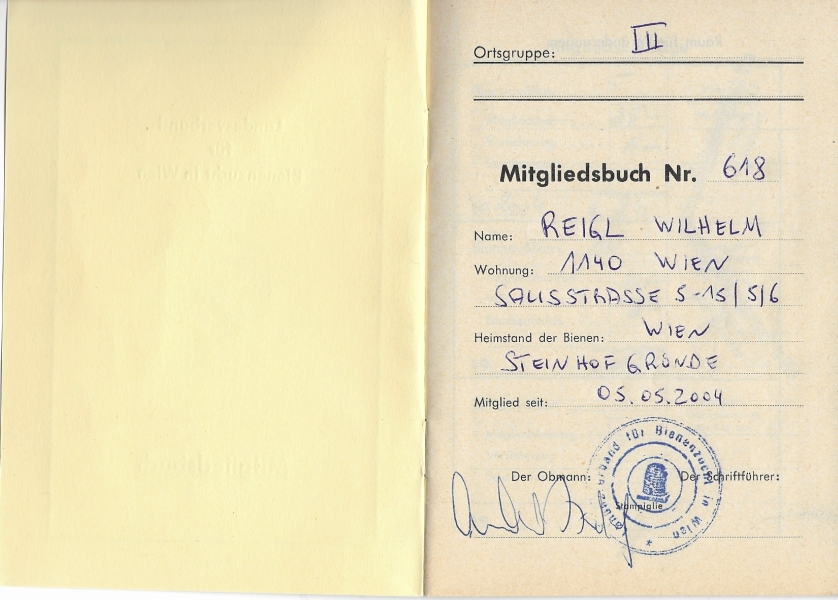 Ortsgruppe: III
Mitgliedsbuch Nr. 618
Name: REIGL WILHELM
Wohnung: 1140 WIEN
SALISSTRASSE 5-15/5/6
Heimstand der Bienen: WIEN
STEINHOFGRÜNDE
Mitglied seit: 05.05.2004
Landesverband für Bienenzucht in Wien *
Der Obmann: Der Schriftführer:
Stampiglie